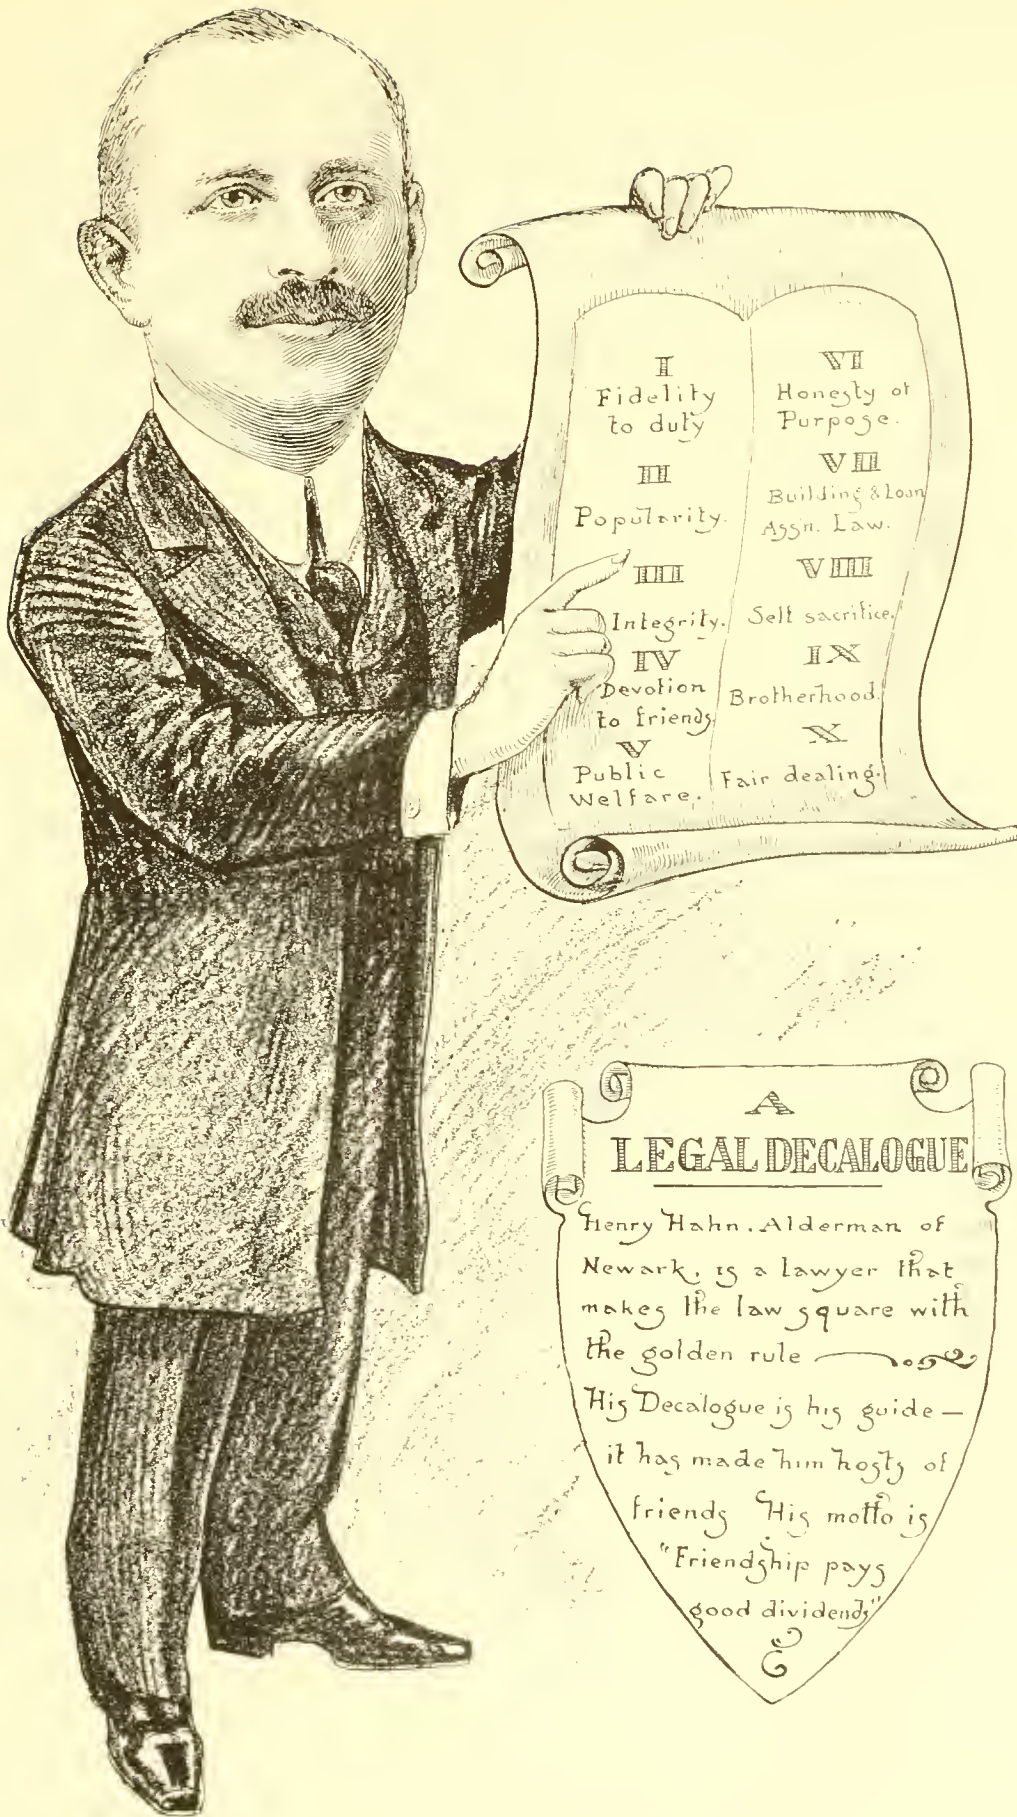 I
Fidelity
to duty
II
Popularity.
III
Integrity.
IV
Devotion
to friends
V
Public
Welfare.
VI
Honesty of
Purpose.
VII
Building & Loan
Ass'n. Law.
VIII
Self sacrifice.
IX
Brotherhood.
X
Fair dealing.
A
LEGAL DECALOGUE
Henry Hahn. Alderman of
Newark, is a lawyer that
makes the law square with
the golden rule
His Decalogue is his guide —
it has made him hosts of
friends His motto is
"Friendship pays
good dividends"